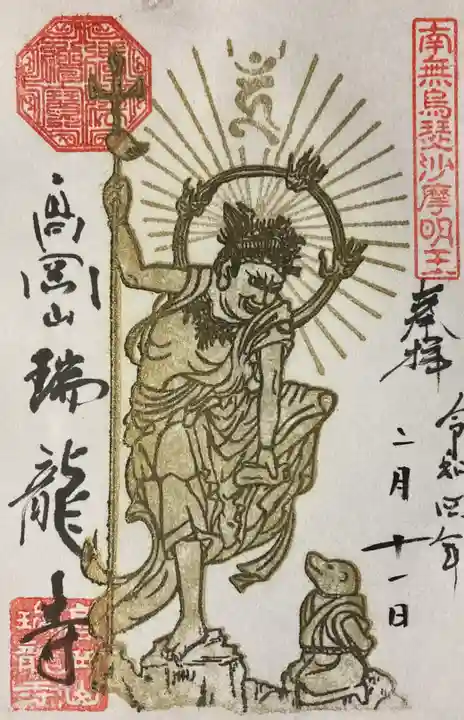 南無烏瑟沙摩明王
奉拝
令和四年
二月十一日
高岡山瑞龍寺